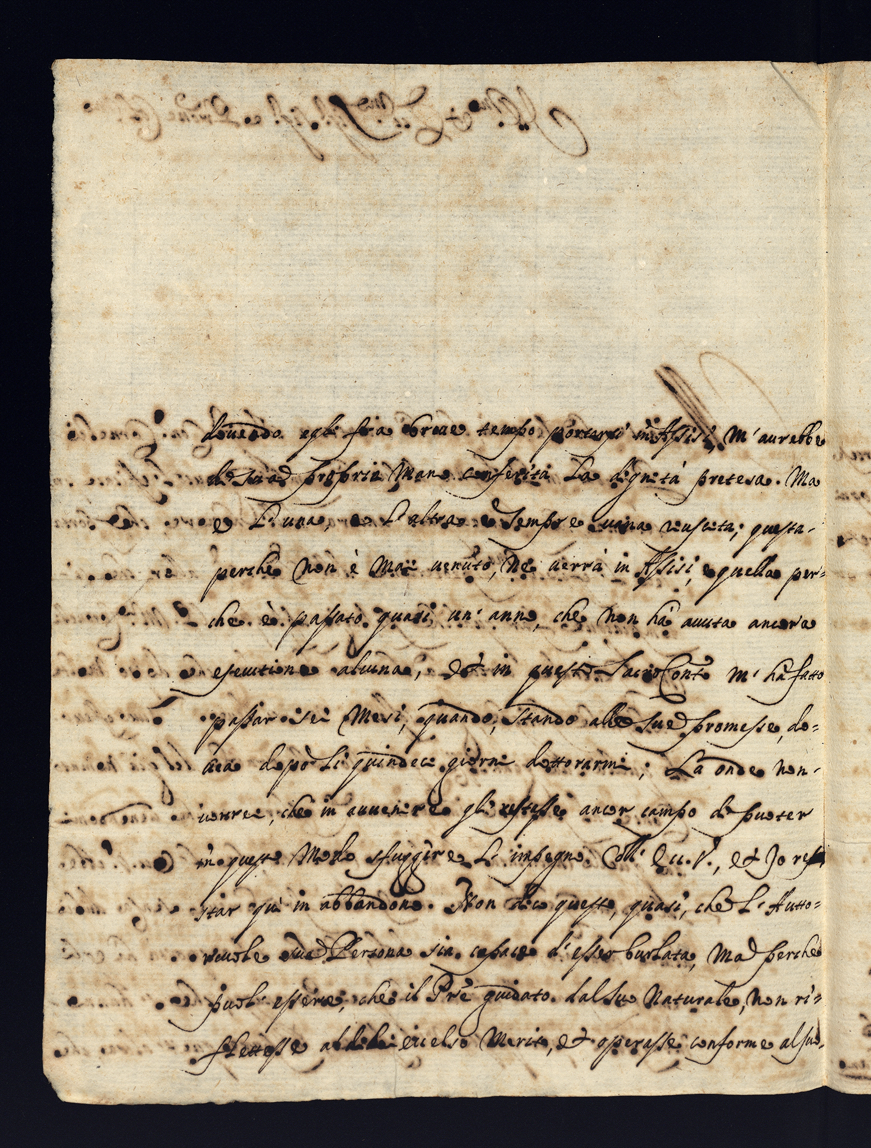 dovendo egli fra breve tempo portarsi in Assisi, m'aurebbe
di sua propria Mano conferita La dignità pretesa. Ma
e L'una, e L'altra è sempre vana riuscita; questa
perche non è Mai venuto, ne verrà in Assisi, e quella per=
che è passato quasi un'anno, che non hà avuta ancora
esecutione alcuna, et in questo m'hà fatto
passar sei Mesi, quando, stando alle sue promesse, do=
vea dopo Li quindeci giorni dottorarmi; La onde non
vorrei, che in avvenire gli restasse ancor campo di puoter
in questo Modo sfuggire L'impegno coll' Ecc. V., et Jo re
star quì in abbandono. Non dico questo, quasi, che L'Autto=
revole sua Persona sia capace d'esser burlata, Ma perche
puol' essere, che il Pre guidato dal suo Naturale, non ri=
flettesse al di lei eccelso Merito, et operasse conforme al suo